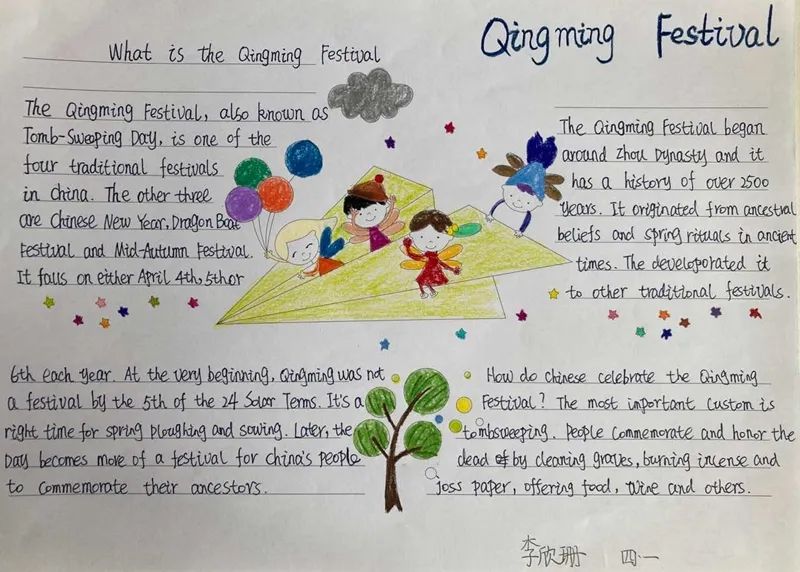 Qingming Festival
What is the Qingming Festival
The Qingming Festival, also known as
Tomb-Sweeping Day, is one of the
four traditional festivals
in China. The other three
are Chinese New Year, Dragon Boat
Festival and Mid-Autumn Festival.
It falls on either April 4th, 5th or
6th each year. At the very beginning, Qingming was not
a festival by the 5th of the 24 Solar Terms. It's a
right time for spring ploughing and sowing. Later, the
Day becomes more of a festival for China's people
to commemorate their ancestors.
The Qingming Festival began
around Zhou Dynasty and it
has a history of over 2500
years. It originated from ancestral
beliefs and spring rituals in ancient
times. The developorated it
to other traditional festivals.
How do Chinese celebrate the Qingming
Festival? The most important custom is
tombsweeping. People commemorate and honor the
dead by cleaning graves, burning incense and
joss paper, offering food, wine and others.
李欣珊 四.一